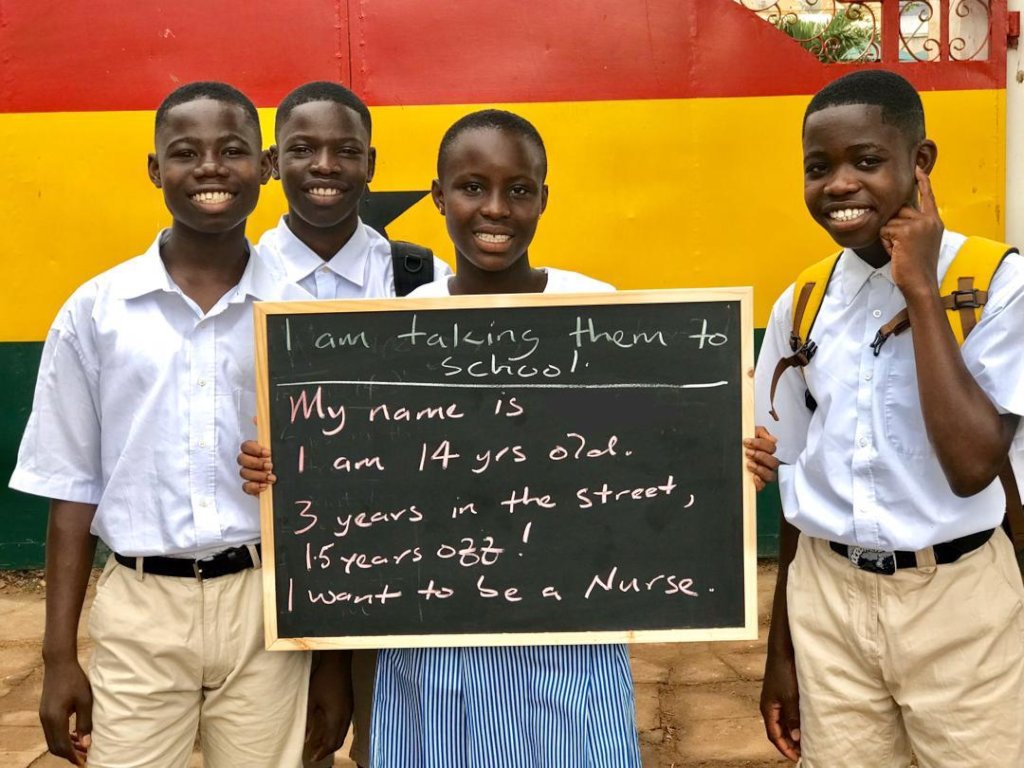 I am taking them to
school.
My name is
I am 14 yrs old.
3 years in the street,
1.5 years off!
I want to be a Nurse.